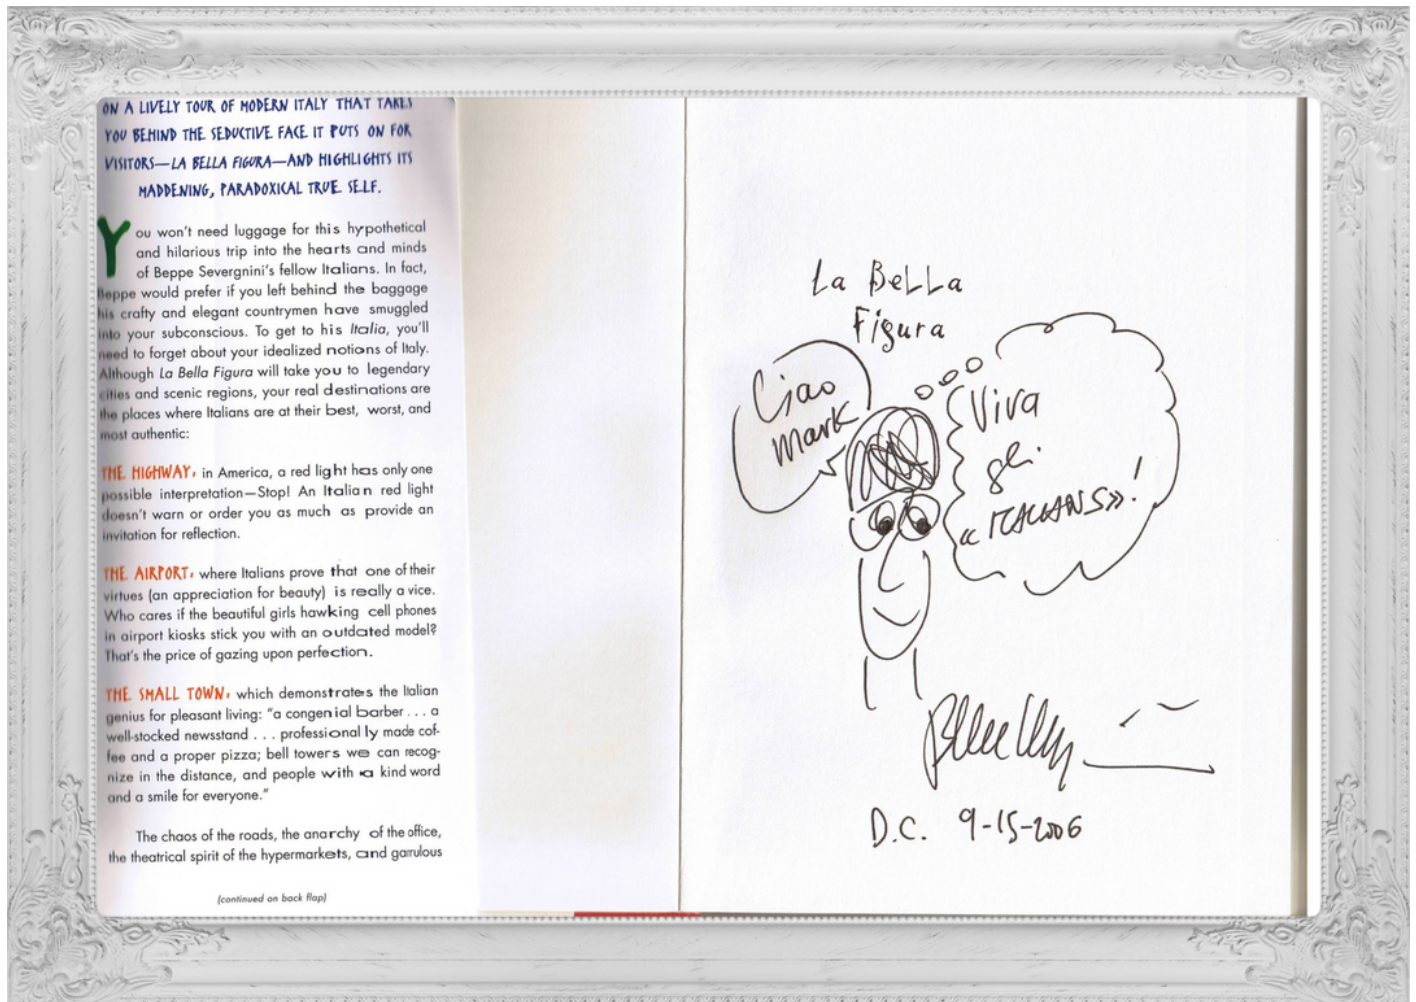 ON A LIVELY TOUR OF MODERN ITALY THAT TAKES
YOU BEHIND THE SEDUCTIVE FACE IT PUTS ON FOR
VISITORS—LA BELLA FIGURA—AND HIGHLIGHTS ITS
MADDENING, PARADOXICAL TRUE SELF.
You won't need luggage for this hypothetical
and hilarious trip into the hearts and minds
of Beppe Severgnini's fellow Italians. In fact,
Beppe would prefer if you left behind the baggage
his crafty and elegant countrymen have smuggled
into your subconscious. To get to his Italia, you'll
need to forget about your idealized notions of Italy.
Although La Bella Figura will take you to legendary
cities and scenic regions, your real destinations are
the places where Italians are at their best, worst, and
most authentic:
THE HIGHWAY: in America, a red light has only one
possible interpretation—Stop! An Italian red light
doesn't warn or order you as much as provide an
invitation for reflection.
THE AIRPORT: where Italians prove that one of their
virtues (an appreciation for beauty) is really a vice.
Who cares if the beautiful girls hawking cell phones
in airport kiosks stick you with an outdated model?
That's the price of gazing upon perfection.
THE SMALL TOWN: which demonstrates the Italian
genius for pleasant living: "a congenial barber . . . a
well-stocked newsstand . . . professionally made cof-
fee and a proper pizza; bell towers we can recog-
nize in the distance, and people with a kind word
and a smile for everyone."
The chaos of the roads, the anarchy of the office,
the theatrical spirit of the hypermarkets, and garrulous
(continued on back flap)
La Bella
Figura
Ciao
Mark
Viva
gli
«ITALIANS»!
D.C. 9-15-2006